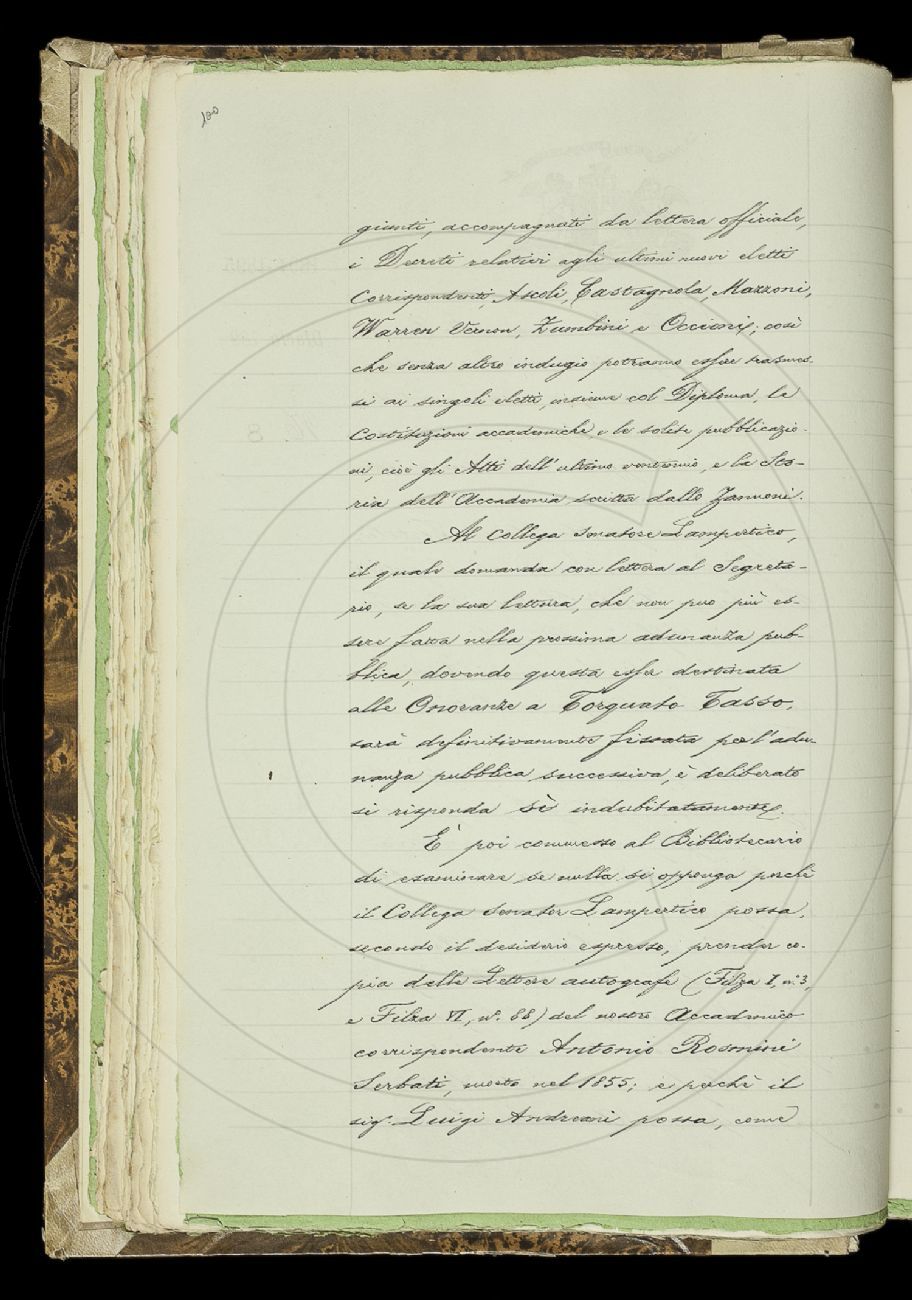 100
giunti, accompagnati da lettera officiale,
i Decreti relativi agli ultimi nuovi eletti
Corrispondenti, Ascoli, Castagnola, Mazzoni,
Warren Vernon, Zumbini e Occioni; così
che senza altro indugio potranno esser trasmes-
si ai singoli eletti, insieme col Diploma, le
Costituzioni accademiche, e le solite pubblicazio-
ni, cioè gli Atti dell'ultimo ventennio, e la Sto-
ria dell'Accademia scritta dallo Zannoni.
Al Collega Senatore Lampertico,
il quale domanda con lettera al Segreta-
rio, se la sua lettura, che non può più es-
sere fatta nella prossima adunanza pub-
blica, dovendo questa esser destinata
alle Onoranze a Torquato Tasso,
sarà definitivamente fissata per l'adu-
nanza pubblica successiva, è deliberato
si risponda sì indubitatamente.
È poi commesso al Bibliotecario
di esaminare se nulla si opponga perchè
il Collega Senator Lampertico possa,
secondo il desiderio espresso, prender co-
pia delle Lettere autografe (Filza I, n.° 3,
e Filza VI, n.° 88) del nostro Accademico
corrispondente Antonio Rosmini
Serbati, morto nel 1855; e perchè il
sig.r Luigi Andreani possa, come